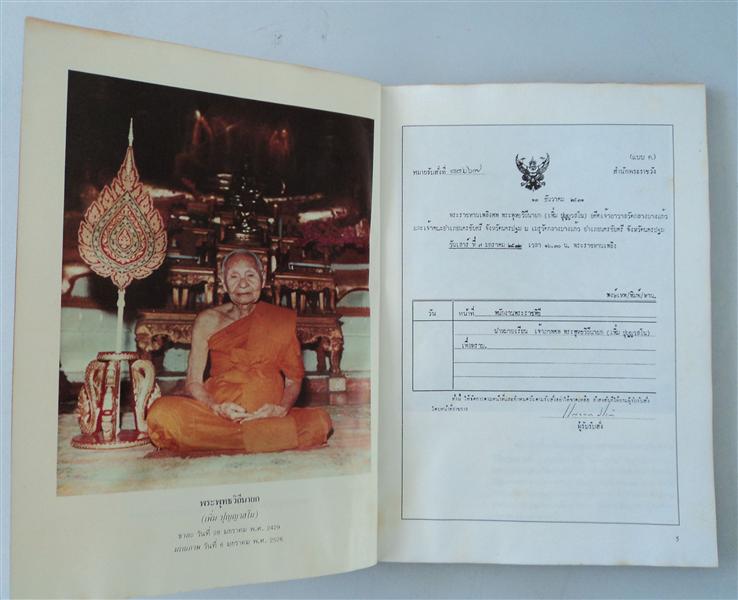 พระพุทธวิถีนายก
(เพิ่ม ปุญฺญวสโน)
ชาตะ วันที่ 28 มกราคม พ.ศ. 2429
มรณภาพ วันที่ 6 มกราคม พ.ศ. 2526
(แบบ ค.)
หมายรับสั่งที่
สำนักพระราชวัง
ธันวาคม
พระราชทานเพลิงศพ พระพุทธวิถีนายก (เพิ่ม ปุญฺญวสโน) อดีตเจ้าอาวาสวัดกลางบางแก้ว
และเจ้าคณะอำเภอนครชัยศรี จังหวัดนครปฐม ณ เมรุวัดกลางบางแก้ว อำเภอนครชัยศรี จังหวัดนครปฐม
วันเสาร์ ที่ ๗ มกราคม เวลา น. พระราชทานเพลิง
วัน หน้าที่ พนักงานพระราชพิธี
นำหมายเรียน เจ้าภาพศพ พระพุทธวิถีนายก (เพิ่ม ปุญฺญวสโน)
เพื่อทราบ.
ผู้รับรับสั่ง
5